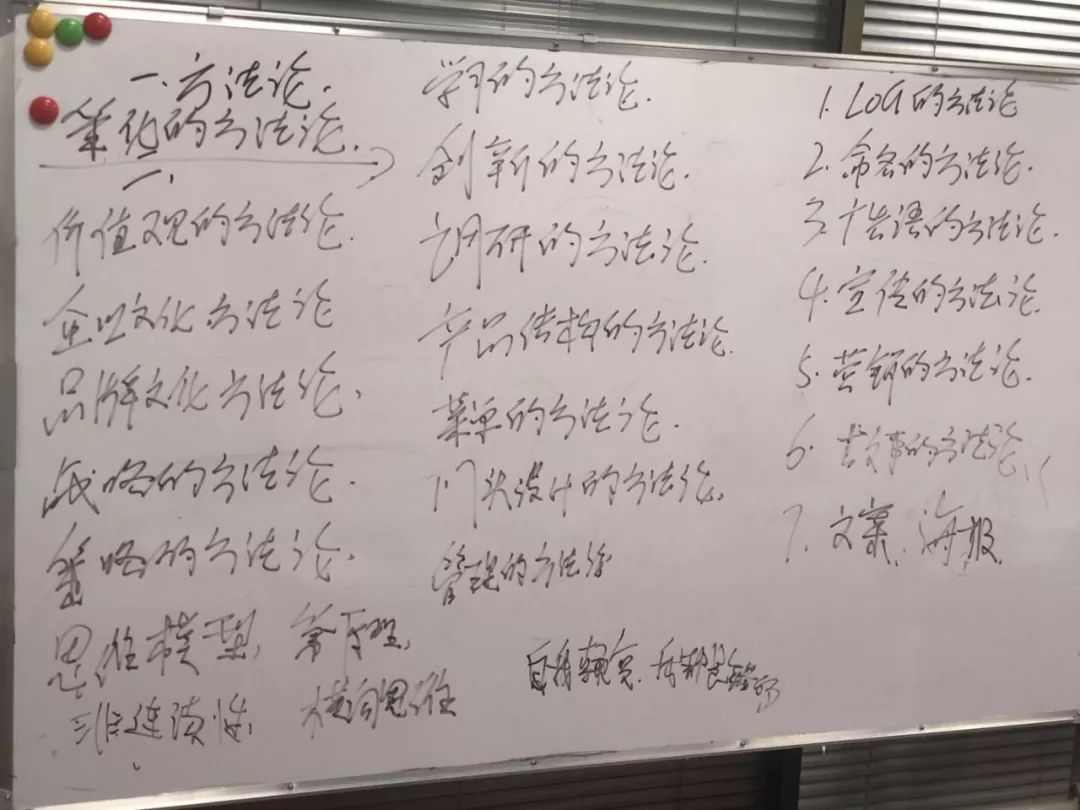 一.方法论.
的方法论.
价值观的方法论.
企业文化方法论
品牌文化方法论.
战略的方法论.
策略的方法论.
思维模型, 第一性,
非连续性, 横向思维
学习的方法论.
创新的方法论.
调研的方法论.
产品结构的方法论.
菜单的方法论.
门头设计的方法论.
管理的方法论
自我
1. LOG的方法论
2. 命名的方法论.
3. 广告语的方法论.
4. 宣传的方法论.
5. 营销的方法论.
6. 故事的方法论.
7. 文案. 海报.